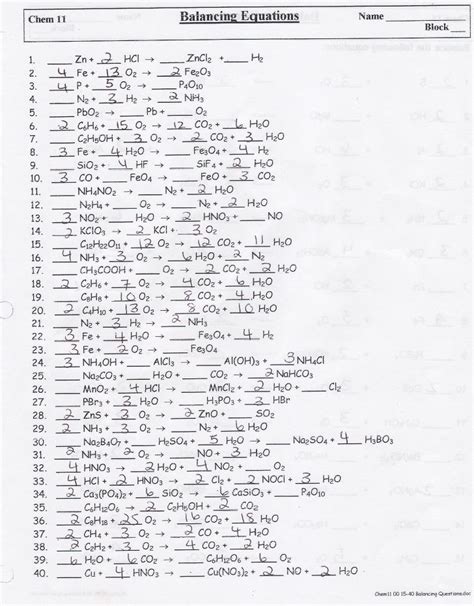 Chem 11 Balancing Equations Name ____
Block ___
1. ___ Zn + 2 HCl → ___ ZnCl2 + ___ H2
2. 4 Fe + 13 O2 → 2 Fe2O3
3. 4 P + 5 O2 → ___ P4O10
4. ___ N2 + 3 H2 → 2 NH3
5. ___ PbO2 → ___ Pb + ___ O2
6. 2 C6H6 + 15 O2 → 12 CO2 + 6 H2O
7. ___ C2H5OH + 3 O2 → 2 CO2 + 3 H2O
8. 3 Fe + 4 H2O → ___ Fe3O4 + 4 H2
9. ___ SiO2 + 4 HF → ___ SiF4 + 2 H2O
10. 3 CO + ___ FeO4 → ___ FeO + 3 CO2
11. ___ NH4NO2 → ___ N2 + 2 H2O
12. ___ N2H4 + ___ O2 → ___ N2 + 2 H2O
13. 3 NO2 + ___ H2O → 2 HNO3 + ___ NO
14. 2 KClO3 → 2 KCl + 3 O2
15. ___ C12H22O11 + 12 O2 → 12 CO2 + 11 H2O
16. 4 NH3 + 3 O2 → 6 H2O + 2 N2
17. ___ CH3COOH + 2 O2 → 2 CO2 + 2 H2O
18. 2 C2H6 + 7 O2 → 4 CO2 + 6 H2O
19. ___ C8H8 + 10 O2 → 8 CO2 + 4 H2O
20. 2 C4H10 + 13 O2 → 8 CO2 + 10 H2O
21. ___ N2 + 3 H2 → 2 NH3
22. 3 Fe + 4 H2O → ___ Fe3O4 + 4 H2
23. 3 Fe + 2 O2 → ___ Fe3O4
24. 3 NH4OH + ___ AlCl3 → ___ Al(OH)3 + 3 NH4Cl
25. ___ Na2CO3 + ___ H2O + ___ CO2 → 2 NaHCO3
26. ___ MnO2 + 4 HCl → ___ MnCl2 + 2 H2O + ___ Cl2
27. ___ PBr3 + 3 H2O → ___ H3PO3 + 3 HBr
28. 2 ZnS + 3 O2 → 2 ZnO + ___ SO2
29. 2 NH3 + 3 O2 → ___ N2 + 3 H2O
30. ___ Na2B4O7 + ___ H2SO4 + 5 H2O → ___ Na2SO4 + 4 H3BO3
31. 2 NH3 + 2 O2 → ___ NO + 3 H2O
32. 4 HNO3 → 2 H2O + 4 NO2 + ___ O2
33. 4 HCl + 2 HNO3 → ___ Cl2 + 2 NOCl + 3 H2O
34. 2 Ca3(PO4)2 + 6 SiO2 → 6 CaSiO3 + ___ P4O10
35. ___ C6H12O6 → 2 C2H5OH + 2 CO2
36. 2 C8H18 + 25 O2 → 16 CO2 + 18 H2O
37. 2 CH4 + 3 O2 → 2 CO + 4 H2O
38. 2 C2H2 + 3 O2 → 4 CO + 2 H2O
39. 6 H2O + 6 CO2 → ___ C6H12O6 + 6 O2
40. ___ Cu + 4 HNO3 → ___ Cu(NO3)2 + 2 NO2 + 2 H2O